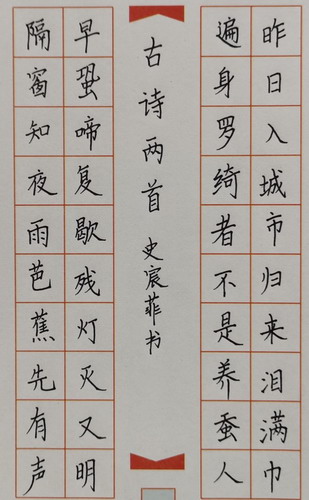 昨日入城市归来泪满巾
遍身罗绮者不是养蚕人
古诗两首 史宸菲书
早蛩啼复歇残灯灭又明
隔窗知夜雨芭蕉先有声